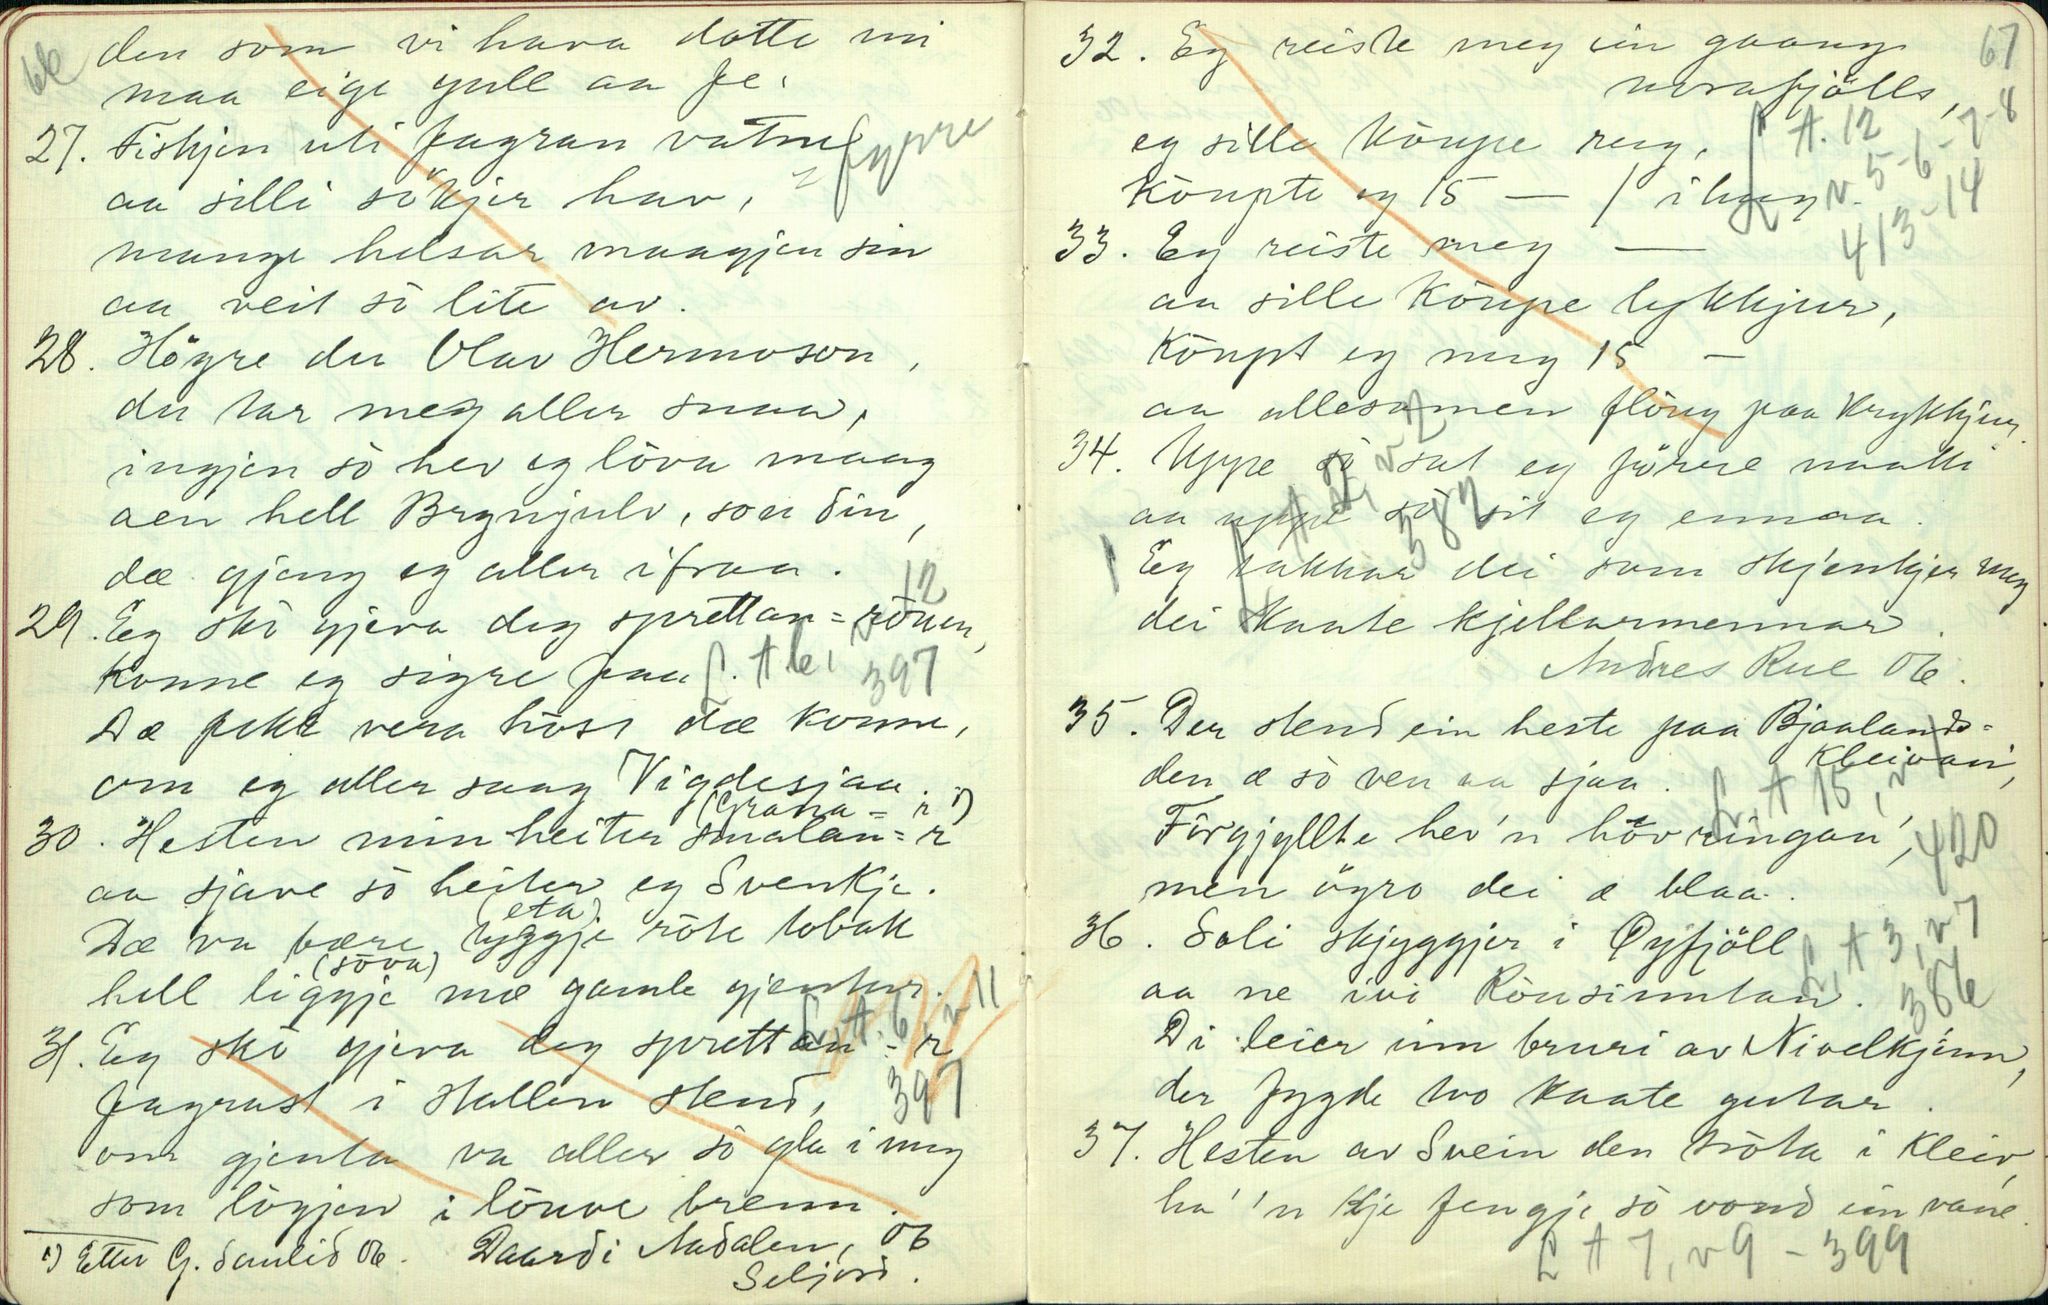 66
den som vi hava dotte mi
maa eige gull aa fe.
27. Fiskjen uti fagran vatne
fyrre
aa silli sökjer hav,
mange helsar maagjen sin
aa veit so lite av.
28. Högre du Olav Hermoson,
du tar meg aller snaa,
ingjen so hev eg lova maag
aen hell Brynjulv, son din,
dæ gjeng eg aller ifraa.
29. Eg sko gjeva deg sprettan = röuen,
konne eg sigre faa
L. A 6, v 12
397
Dæ fekk vera hoss dæ konne,
om eg aller saag Vigdesjaa.
(Grana = r 1)
30. Hesten min heiter smalan = r
aa sjave so heiter eg Svenkje.
(eta)
Dæ va bære tyggje rote tobak
(sova)
hell liggje mæ gamle gjentur.
L. A. 6, v 11
397
31. Eg sko gjeva deg sprettan = r
fagrast i stallen stend,
om gjenta va aller so gla i meg
som logjen i louve brenn.
1) Etter G. Saulid 06. Daardi Aadalen, 06
Seljord.
67
32. Eg reiste meg ein gaang
norafjölls,
eg sille köupe reug,
L A. 12
v 5-6-7-8
413-14
Köupte eg 15 — / i haug
33. Eg reiste meg —
aa sille köupe lykkjur,
Köupt eg meg 15 —
aa allesamen flöug paa krykkjur.
34. Uppe so sat eg förre naatti
aa uppe so sit eg ennaa.
L A 2, v 2
387
Eg takkar dei som skjenkjer meg
dei kaate kjellarmennar.
Andres Rue 06.
35. Der stend ein heste paa Bjaalands=
kleivan',
den æ so ven aa sjaa.
L. A 15, v 1
420
Forgjyllte hev'n hovringan',
men ögro dei æ blaa.
36. Soli skjyggjer i Öyfjöll
aa ne ivi Röusimtan.
L. A 3, v 7
386
Di leier inn bruri av Nivelkjinn,
der fygde tvo kaate gutar.
37. Hesten av Svein den tröta i kleiv,
ha' 'n kje fengje so vond ein vane.
L A 7, v 9 - 399